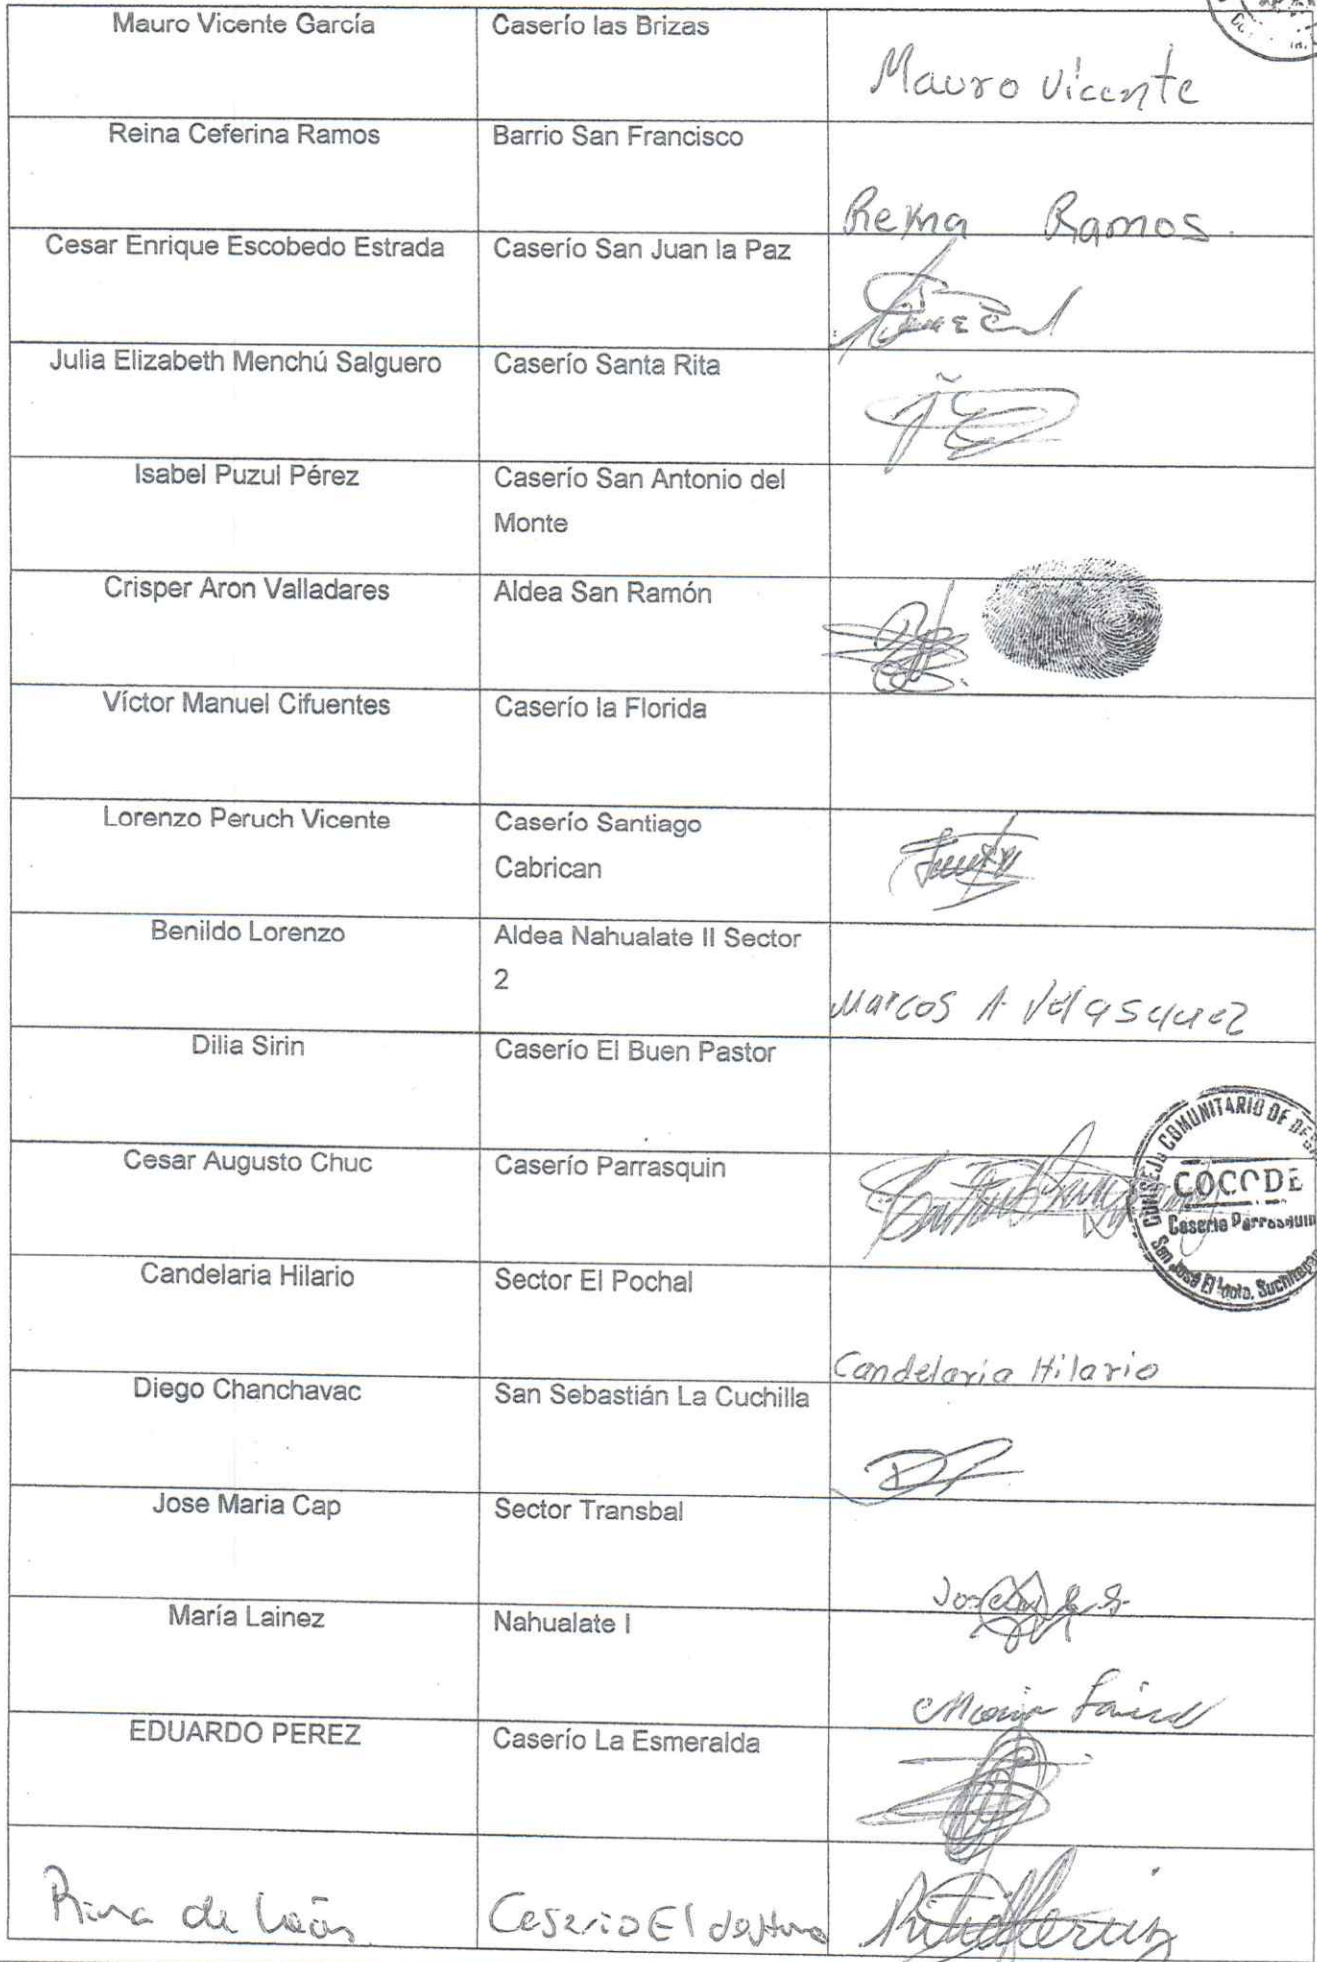 Mauro Vicente García Caserío las Brizas
Mauro Vicente
Reina Ceferina Ramos Barrio San Francisco
Reina Ramos.
Cesar Enrique Escobedo Estrada Caserío San Juan la Paz
Julia Elizabeth Menchú Salguero Caserío Santa Rita
Isabel Puzul Pérez Caserío San Antonio del
Monte
Crisper Aron Valladares Aldea San Ramón
Víctor Manuel Cifuentes Caserío la Florida
Lorenzo Peruch Vicente Caserío Santiago
Cabrican
Benildo Lorenzo Aldea Nahualate II Sector
2
Marcos A. Velasquez
Dilia Sirin Caserío El Buen Pastor
CONSEJO COMUNITARIO DE
Cesar Augusto Chuc Caserío Parrasquin
COCODE
Caserio Parrasquin
San José El Idolo, Suchitepe
Candelaria Hilario Sector El Pochal
Candelaria Hilario
Diego Chanchavac San Sebastián La Cuchilla
Jose Maria Cap Sector Transbal
María Lainez Nahualate I
Maria
EDUARDO PEREZ Caserío La Esmeralda
de León Caserio El